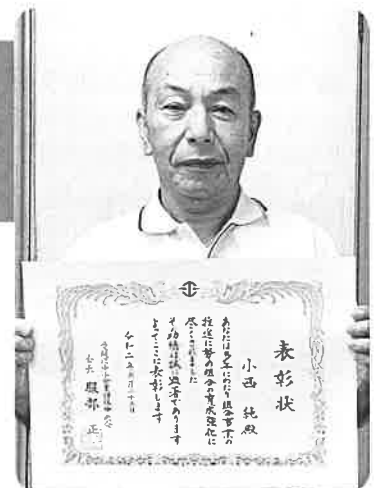 表彰状
小西 純殿
あなたは多年にわたり組合事業の
推進に努め組合の育成強化に
尽くされました
その功績は誠に顕著であります
よってここに表彰します
令和二年
会長 服部 正